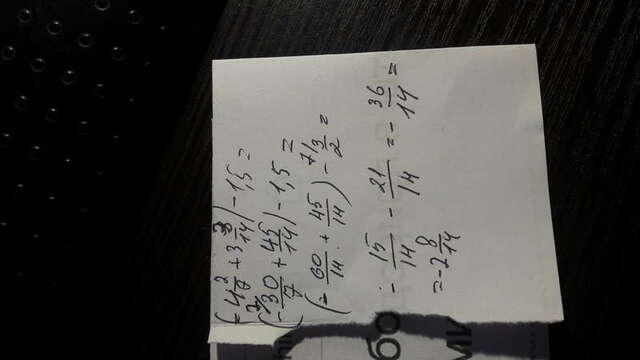 (-4 2/7 + 3 3/14) - 1,5 =
(- ²⁾30/7 + 45/14) - 1,5 =
(- 60/14 + 45/14) - ⁷⁾3/2 =
= 15/14 - 21/14 = - 36/14 =
= -2 8/14